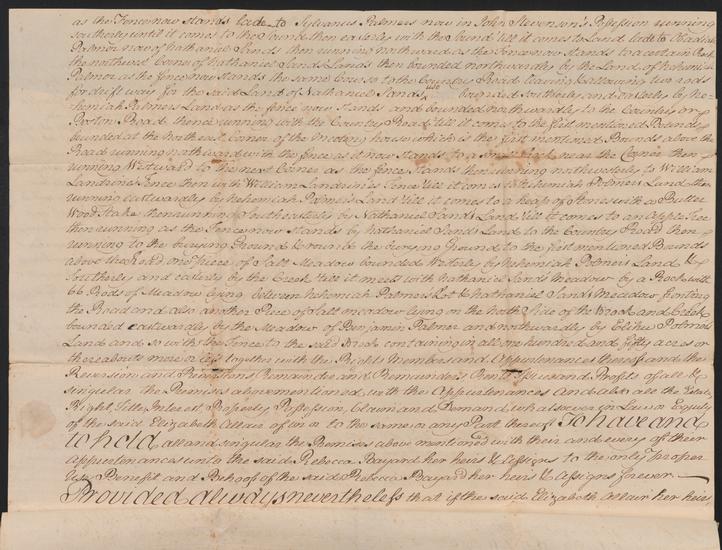 as the Fence now stands late to Sylvanus Palmers now in John Stevenson's Possession running
Southerly until it comes to the Sound then easterly with the Sound till it comes to Land late to Obadiah
Palmer now of Nathaniel Sands then running northward as the Fence now stands to a certain Rock
the northwest Corner of Nathaniel Sands Lands then bounded northwardly by the Land of Nehemiah
Palmer as the fence now stands the same course to the Country Road leaving & allowing two rods
for drift way for the said Land of Nathaniel Sands use bounded Southerly and easterly by Ne=
hemiah Palmers Land as the fence now stands and bounded northwardly to the Country or
Boston Road thence running with the Country Road till it comes to the first mentioned Bounds
bounded at the North east Corner of the Meeting house which is the first mentioned Bounds above the
Road running northward with the fence as it now stands to a near the Corner then
running Westward to the next Corner as the fence stands then running northwesterly to William
Landrine's Fence then with William Landrine's Fence till it comes to Nehemiah Palmers Land then
running eastwardly by Nehemiah Palmers Land till it comes to a heap of stones with a Butter
Wood Stake then running Southwesterly by Nathaniel Sands Land till it comes to an Apple Tree
then running as the Fence now stands by Nathaniel Sands Land to the Country Road then
running to the burying Ground & round the burying Ground to the first mentioned Bounds
above the road one piece of Salt Meadow bounded Westerly by Nehemiah Palmers Land &
Southerly and easterly by the Creek till it meets with Nathaniel Sands Meadow by a Rock with
66 Rods of Meadow lying between Nehemiah Palmers Lot & Nathaniel Sands Meadow fronting
the Road and also another Piece of Salt meadow lying on the North Side of the Brook and Creek
bounded eastwardly by the Meadow of Benjamin Palmer and northwardly by Elihu Palmers
Land and so with the Fence to the said Brook containing in all one hundred and fifty acres or
thereabouts more or less together with the Rights Members and Appurtenances thereof and the
Reversion and Reversions Remainder and Remainders Rents Issues and Profits of all &
singular the Premises abovementioned with the Appurtenances And also all the Estate
Right, Title, Interest, Property, Possession, Claim and Demand whatsoever in Law or Equity
of the said Elizabeth Allair of in or to the same or any Part thereof To have and
to hold all and singular the Premises above mentioned with their and every of their
Appurtenances unto the said Rebecca Bayard her heirs & Assigns to the only proper
Use Benefit and Behoof of the said Rebecca Bayard her heirs & Assigns forever
Provided always nevertheless that if the said Elizabeth Allair her heirs